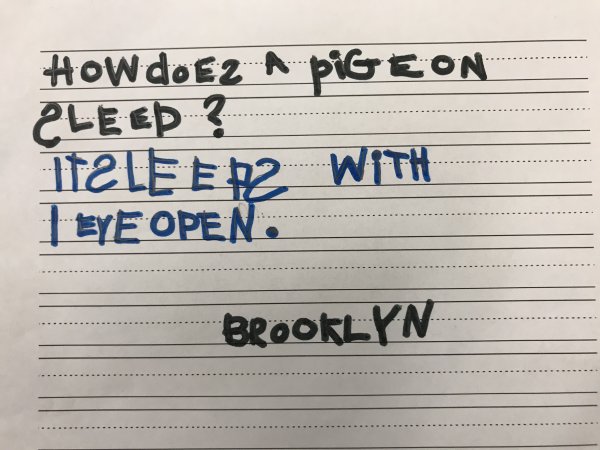 HOW doES A piGEON
SLEEP ?
ITSLEEPS WiTH
1 EYE OPEN.
BROOKLYN